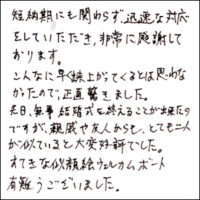 短納期にも関わらず、迅速な対応
をしていただき、非常に感謝して
おります。
こんなに早く仕上がってくるとは思わな
かったので、正直驚きました。
先日、無事結婚式を終えることが出来たの
ですが、親戚や友人からも、とても二人
が似ていると大変好評でした。
すてきな似顔絵ウェルカムボード
有難うございました。